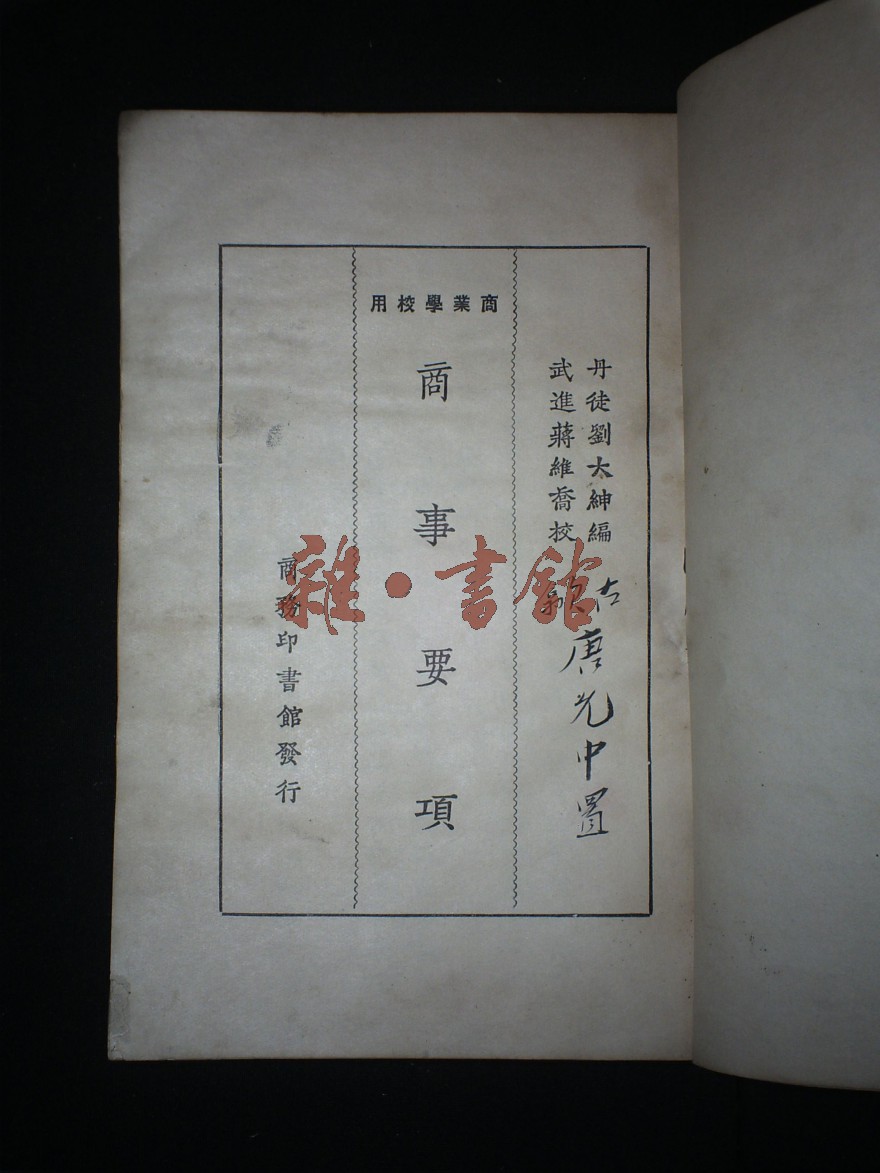 商業學校用
丹徒劉大紳編
武進蔣維喬校
商事要項
商務印書館發行
唐光中置
雜·書館